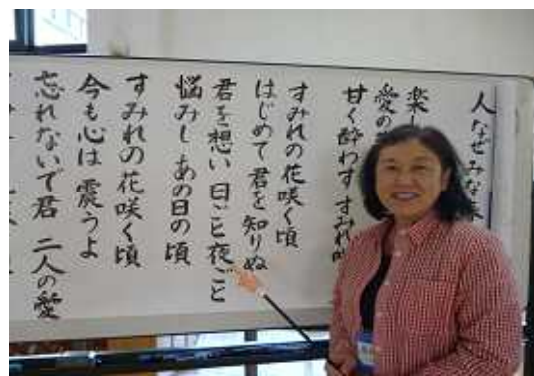 人なぜみな
楽し
愛の
甘く酔わす すみれの
すみれの花咲く頃
はじめて君を知りぬ
君を想い 日ごと夜ごと
悩みし あの日の頃
すみれの花咲く頃
今も心は 震うよ
忘れないで君 二人の愛